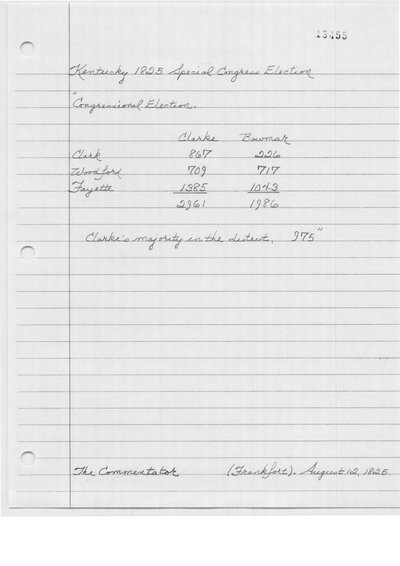 13455
Kentucky 1825 Special Congress Election
"Congressional Election.
Clarke Bowmar
Clark 867 226
Woodford 709 717
Fayette 1385 1043
2961 1986
Clarke's majority in the district, 975"
The Commentator (Frankfort). August 12, 1825.